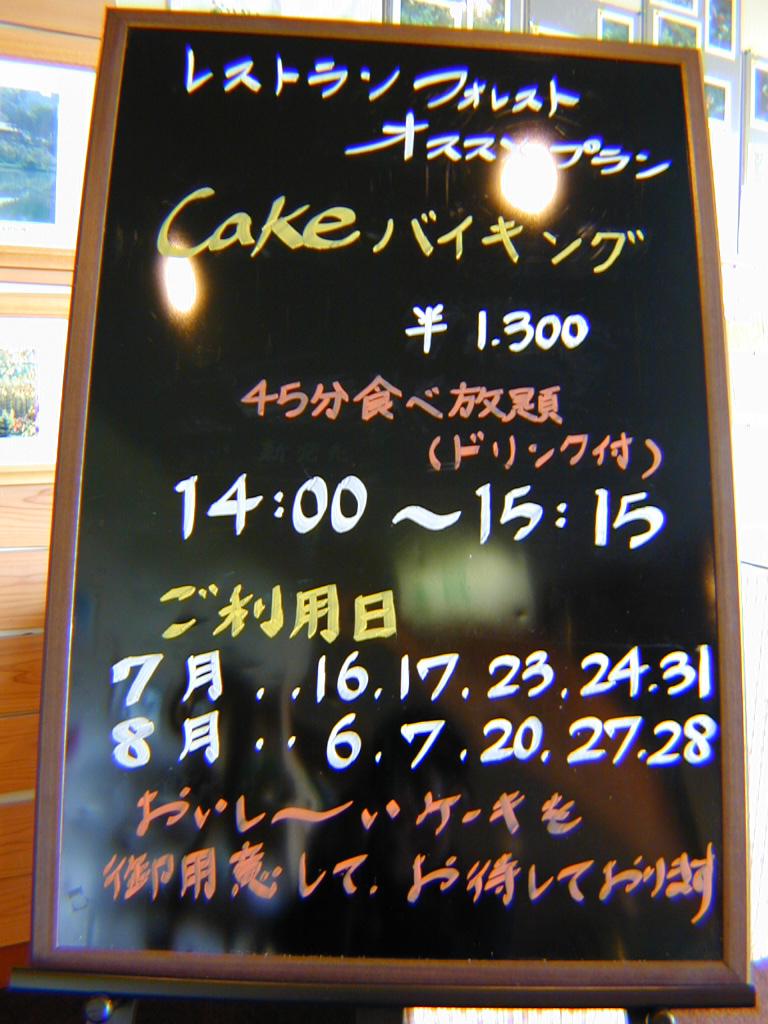 レストラン フォレスト
オススメプラン
Cakeバイキング
¥1.300
45分食べ放題
(ドリンク付)
14:00～15:15
ご利用日
7月..16.17.23.24.31
8月..6.7.20.27.28
おいし～いケーキを
御用意して.お待しております